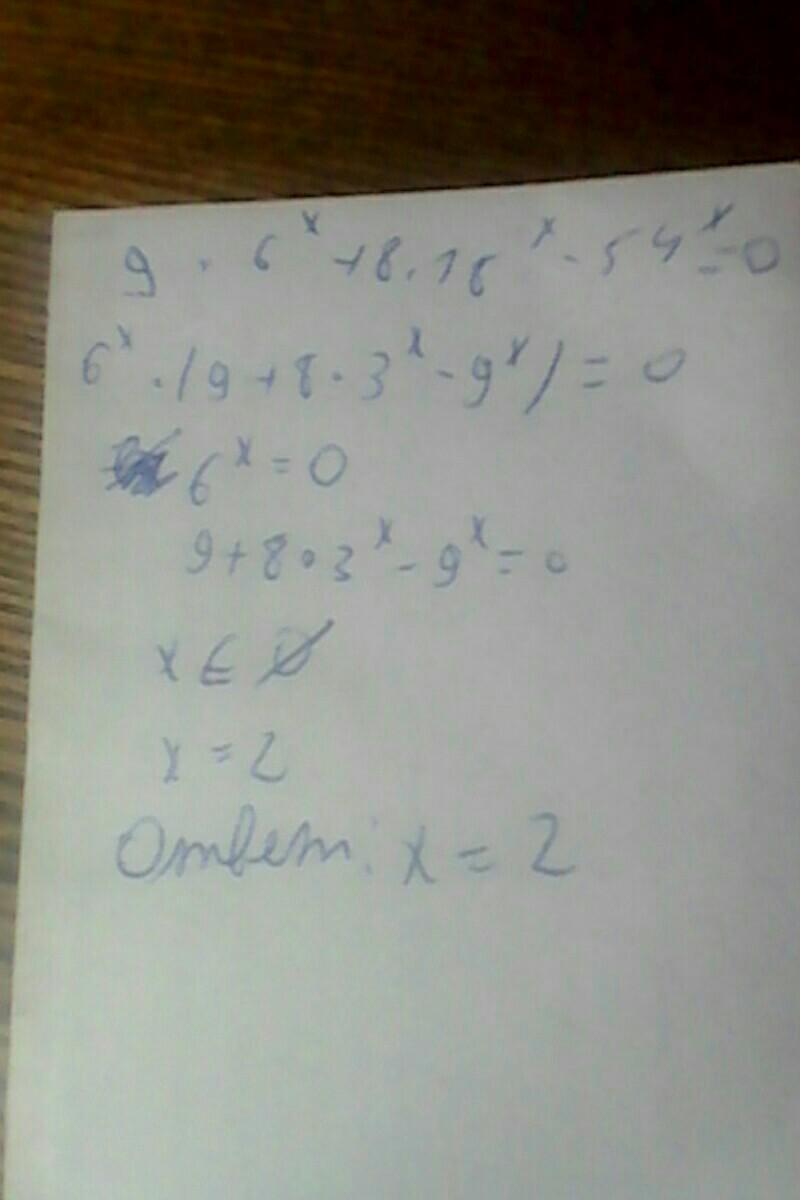 9 · 6^x + 8 · 18^x - 54^x = 0
6^x · (9 + 8 · 3^x - 9^x) = 0
6^x = 0
9 + 8 · 3^x - 9^x = 0
x ∈ Ø
x = 2
Ответ: x = 2